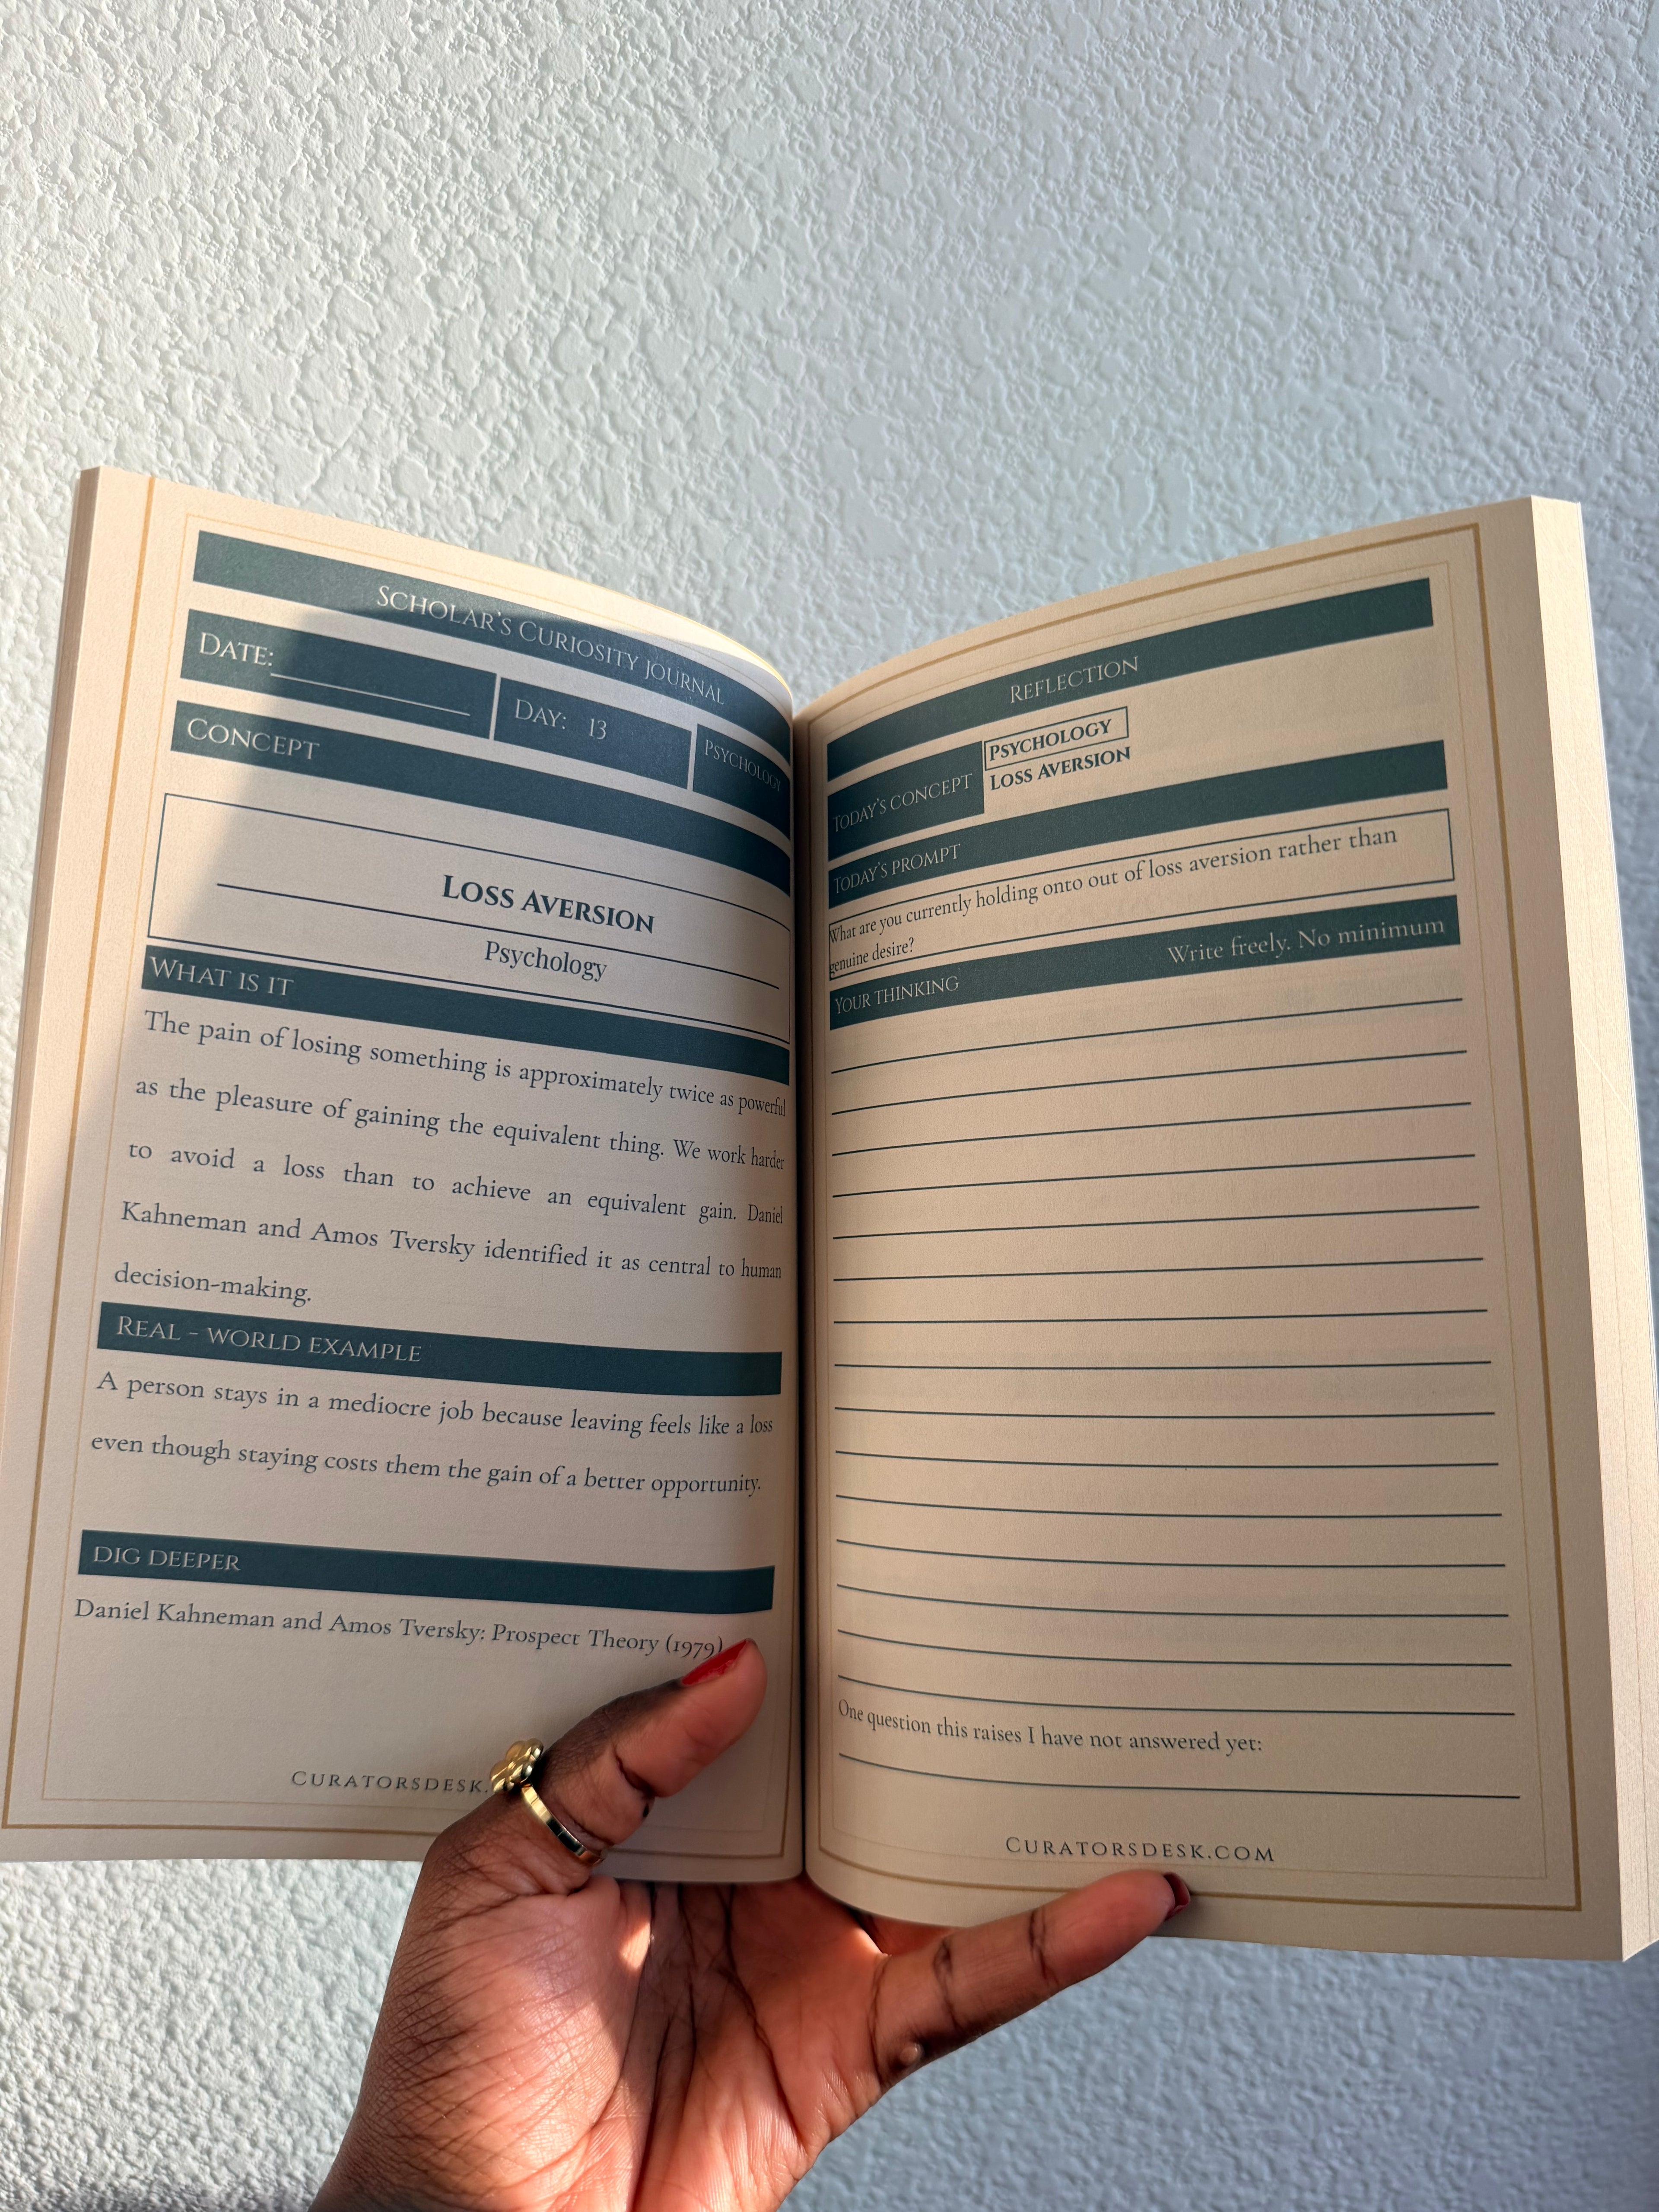 SCHOLAR'S CURIOSITY JOURNAL
DATE:
DAY: 13
PSYCHOLOGY
CONCEPT
LOSS AVERSION
Psychology
WHAT IS IT
The pain of losing something is approximately twice as powerful
as the pleasure of gaining the equivalent thing. We work harder
to avoid a loss than to achieve an equivalent gain. Daniel
Kahneman and Amos Tversky identified it as central to human
decision-making.
REAL - WORLD EXAMPLE
A person stays in a mediocre job because leaving feels like a loss
even though staying costs them the gain of a better opportunity.
DIG DEEPER
Daniel Kahneman and Amos Tversky: Prospect Theory (1979)
CURATORSDESK.
REFLECTION
TODAY'S CONCEPT
PSYCHOLOGY
LOSS AVERSION
TODAY'S PROMPT
What are you currently holding onto out of loss aversion rather than
genuine desire?
YOUR THINKING
Write freely. No minimum
One question this raises I have not answered yet:
CURATORSDESK.COM